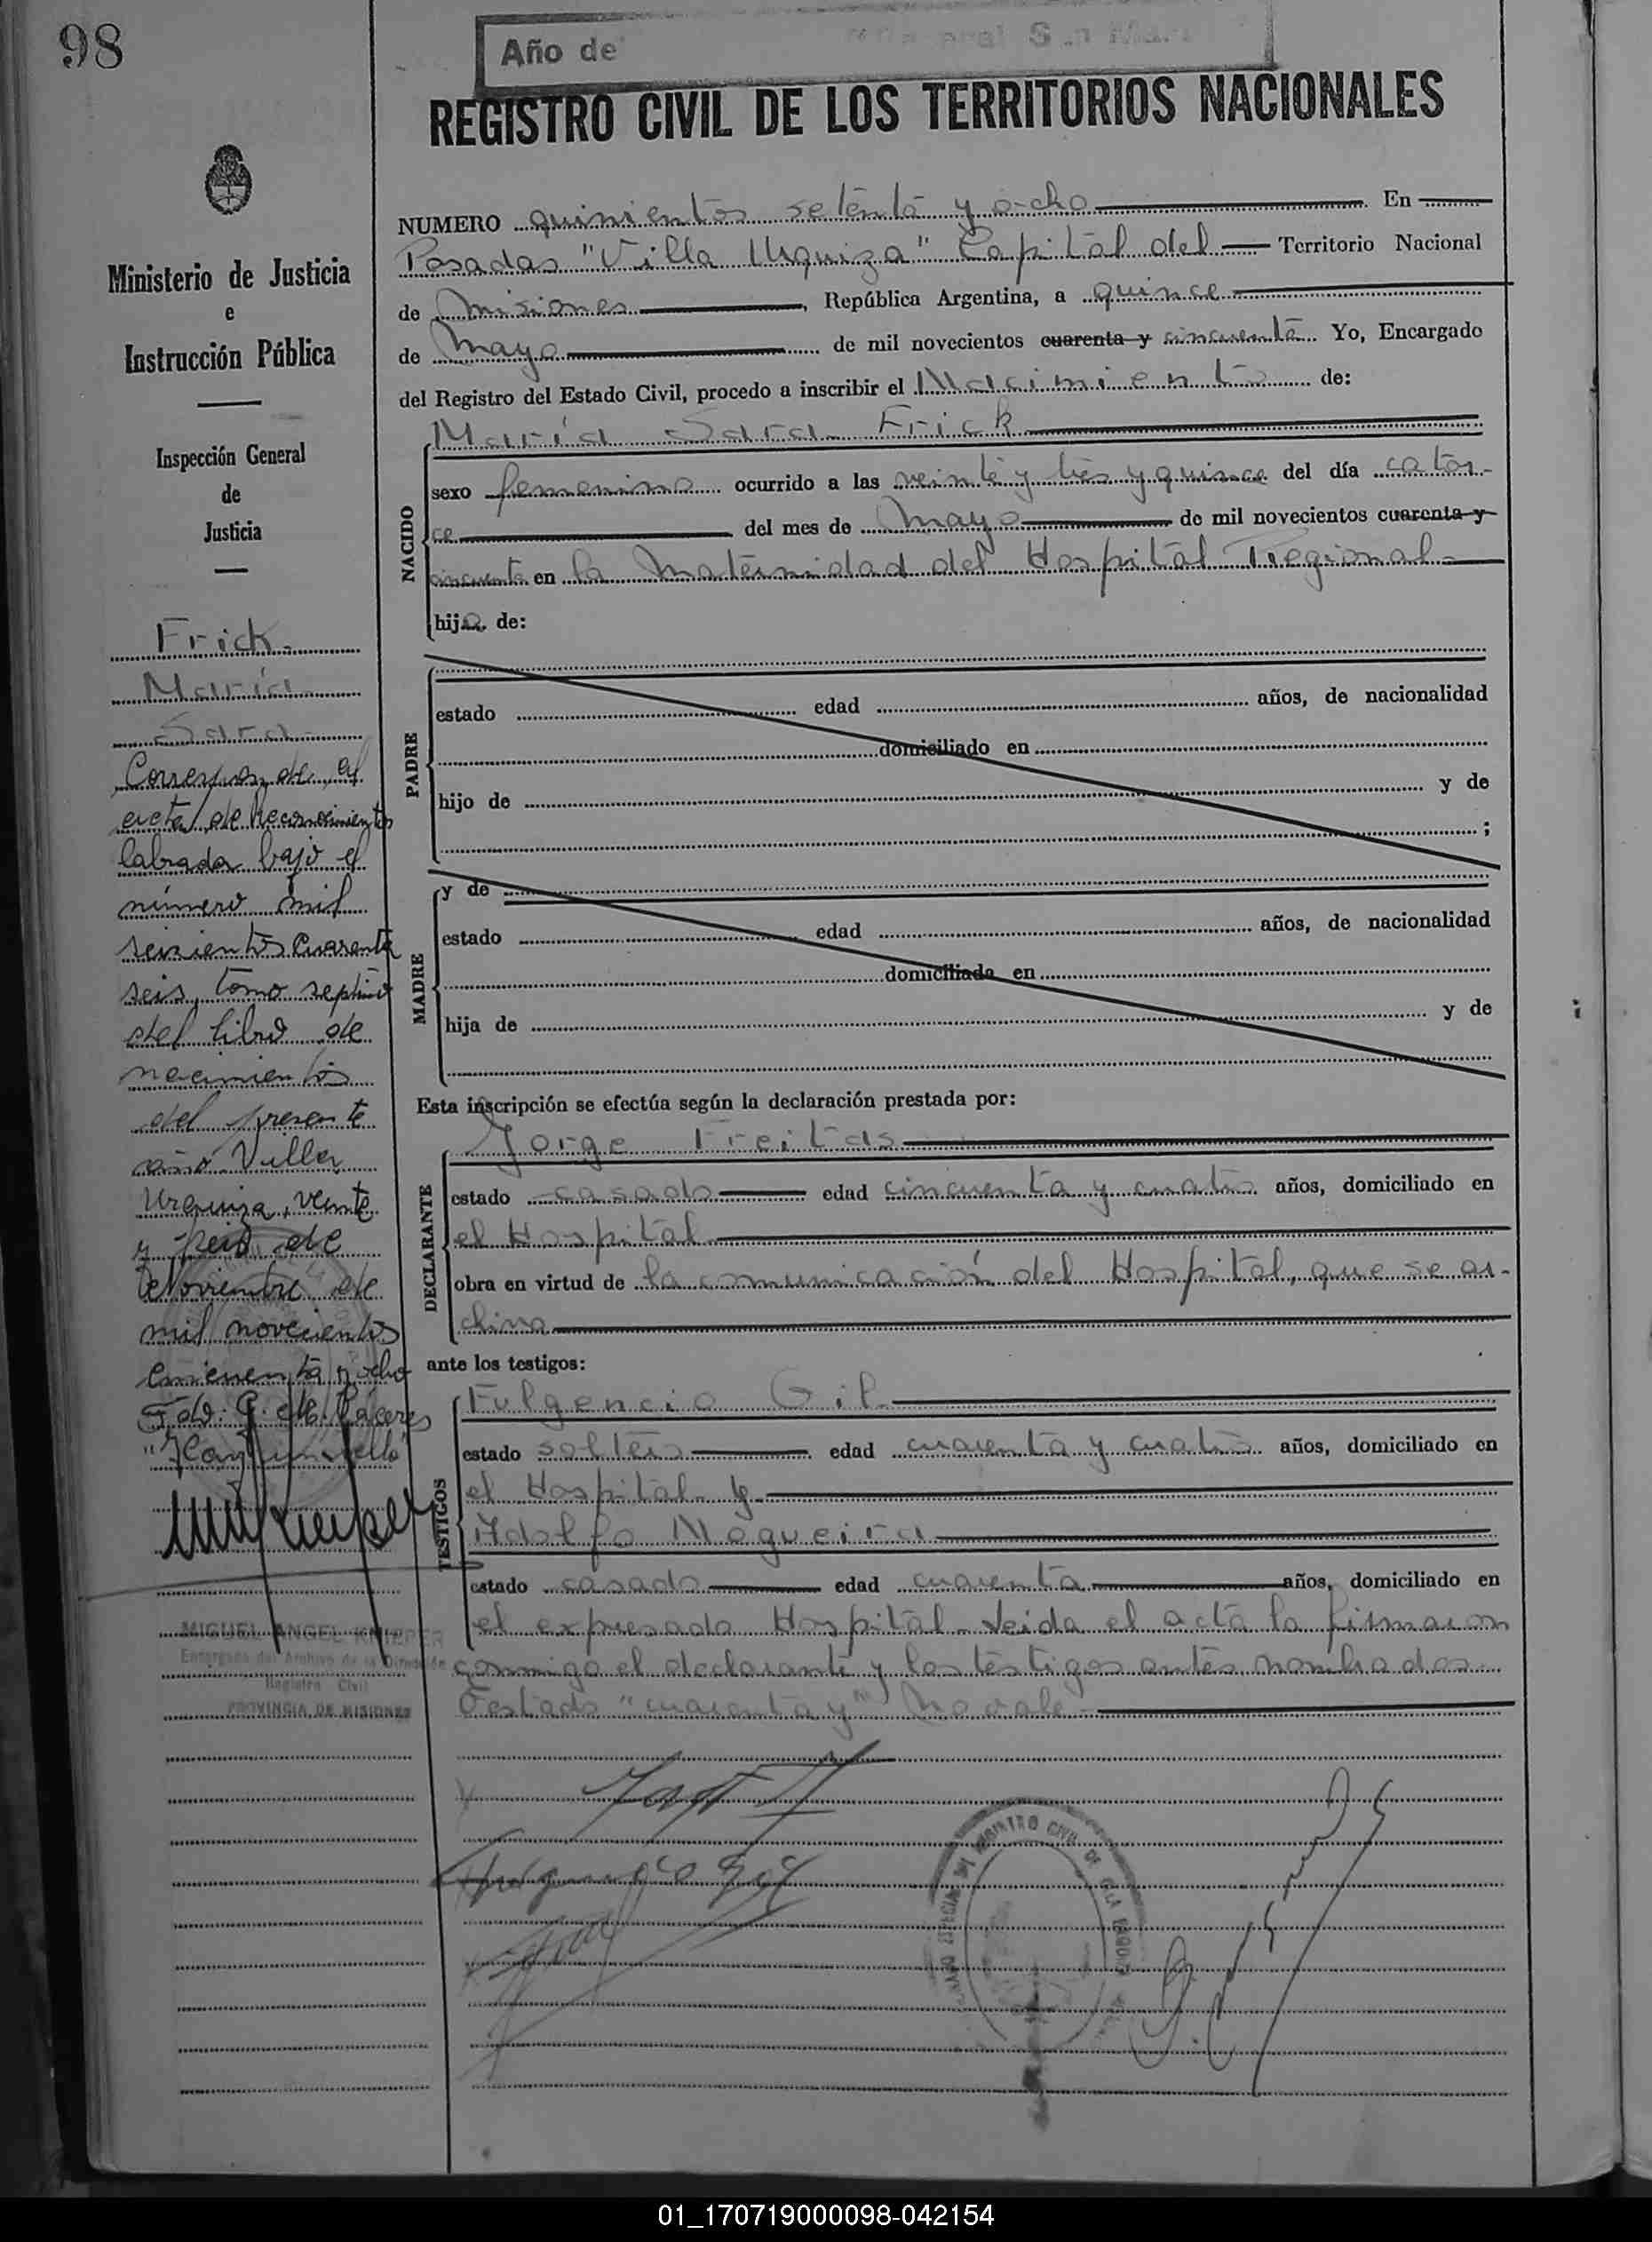 98
Año de
REGISTRO CIVIL DE LOS TERRITORIOS NACIONALES
NUMERO quinientos setenta y ocho En
Posadas "Villa Urquiza" Capital del Territorio Nacional
de Misiones, República Argentina, a quince
de Mayo de mil novecientos cuarenta y cincuenta. Yo, Encargado
del Registro del Estado Civil, procedo a inscribir el Nacimiento de:
María Sara Frick
NACIDO
sexo femenino ocurrido a las veinte y tres y quince del día cator-
ce del mes de Mayo de mil novecientos cuarenta y
cincuenta en la Maternidad del Hospital Regional
hija de:
PADRE
estado edad años, de nacionalidad
domiciliado en
hijo de y de
;
MADRE
y de
estado edad años, de nacionalidad
domiciliada en
hija de y de
Esta inscripción se efectúa según la declaración prestada por:
Jorge Freitas
DECLARANTE
estado casado edad cincuenta y cuatro años, domiciliado en
el Hospital
obra en virtud de la comunicación del Hospital, que se ar-
chiva
ante los testigos:
TESTIGOS
Fulgencio Gil
estado soltero edad cuarenta y cuatro años, domiciliado en
el Hospital y
Adolfo Nogueira
estado casado edad cuarenta años, domiciliado en
el expresado Hospital. Leida el acta la firmaron
conmigo el declarante y los testigos antes nombrados.
Testado "cuarenta y" No vale
Fulgencio Gil
Ministerio de Justicia
e
Instrucción Pública
Inspección General
de
Justicia
Frick
María
Sara
Corresponde al
acta de Reconocimiento
labrada bajo el
número mil
seiscientos cuarenta
seis, tomo septimo
del libro de
nacimientos
del presente
año. Villa
Urquiza, veinte
y seis de
Noviembre de
mil novecientos
cincuenta y ocho
Fdo: G. M. Cáceres
MIGUEL ANGEL KNIEPER
Encargado del Archivo de la Dirección
Registro Civil
PROVINCIA DE MISIONES
01_170719000098-042154